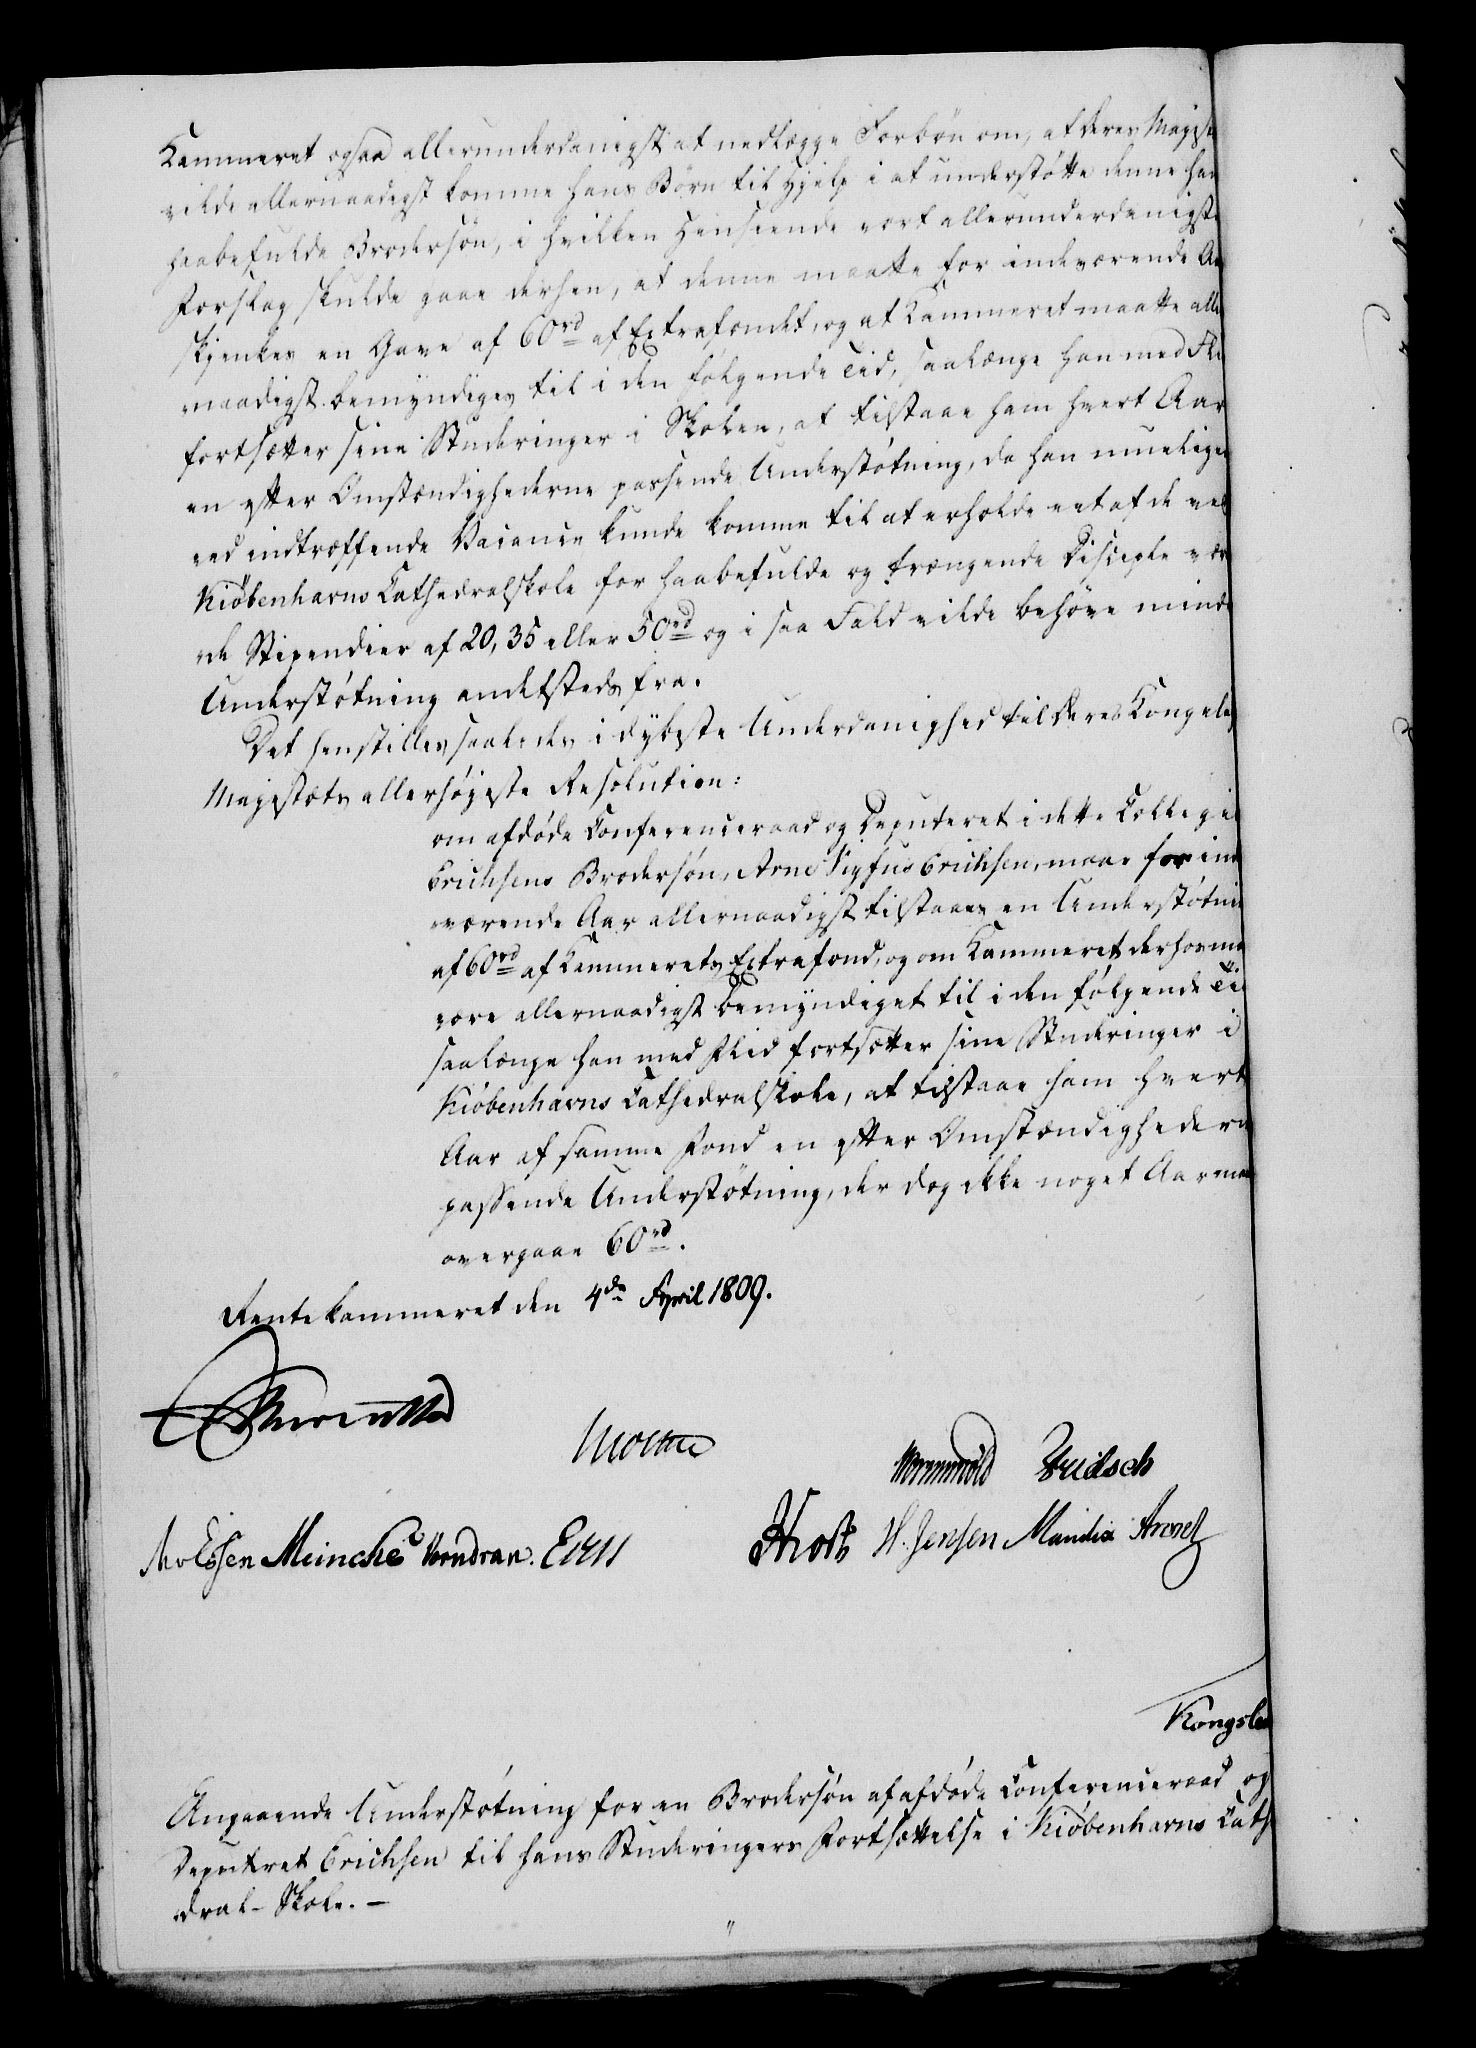 Kammeret ogsaa allerunderdanigst at nedlægge Forbøn om, at deres Majest
vilde allernaadigst komme hans Børn til Hjelp i at understøtte denne han
haabefulde Brodersøn, i hvilken Henseende vort allerunderdanigste
Forslag skulde gaae derhen, at denne maatte for indeværende Aa
skjenkes en Gave af 60rd af Extrafondet, og at Kammeret maatte aller
naadigst bemyndiges til i den følgende Tid, saalænge han med Fli
fortsætter sine Studeringer i Skolen, at tilstaae ham hvert Aar
en efter Omstændighederne passende Understøtning, da han muelige
ved indtræffende Vacance kunde komme til at erholde eet af de ved
Kiøbenhavns Cathedralskole for haabefulde og trængende Disciple vær
de Stipendier af 20, 35 eller 50rd og i saa Fald vilde behøve mindr
Understøtning andetsteds fra.
Det henstilles saaledes i dybeste Underdanighed til Deres Kongel
Majestæts allerhøjeste Resolution:
om afdøde Conferenceraad og Deputeret i dette Collegie
Erichsens Brodersøn, Arne Sigfus Erichsen, maae for inde
værende Aar allernaadigst tilstaaes en Understøtnin
af 60rd af Kammerets Extrafond, og om Kammeret derhos ma
være allernaadigst bemyndiget til i den følgende Ti
saalænge han med Flid fortsætter sine Studeringer i
Kiøbenhavns Cathedralskole, at tilstaae ham hvert
Aar af samme Fond en efter Omstændighedern
passende Understøtning, der dog ikke noget Aar maa
overgaae 60rd.
Rentekammeret den 4de April 1809.
Moltke
Wormskiold Fridsch
Meinche Vondran.
Høst H. Jensen Mandix
Kongele
Angaaende Understøtning for en Brodersøn af afdøde Conferenceraad og
Deputeret Erichsen til hans Studeringers Fortsættelse i Kiøbenhavns Cath
dral-Skole. –